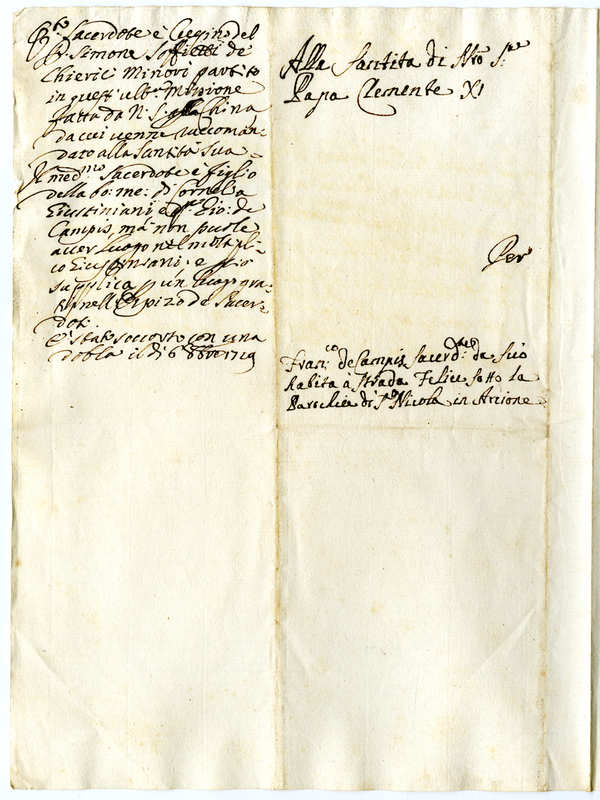 Q.to Sacerdote è Cugino del
P. Simone Soffietti de
Chierici Minori partito
in quest' ult.a Missione
fatta da N. S. alla China
da cui venne raccoman-
dato alla Santità Sua
Il med.mo Sacerdote è figlio
della bo: me: di Cornelia
Giustiniani e Gio: de
Campis, mà non puole
aver luogo nel
co Giustiniani, e
supplica un luogo gra-
nell' Ospizio de Sacer-
doti
È stato soccorso con una
dobla il dì 6 8bre 1719
Alla Santità di Nro S.re
Papa Clemente XI
Per
Fran.co de Campis Sacerd.
habita a Strada Felice sotto la
di S. Nicola in Arcione